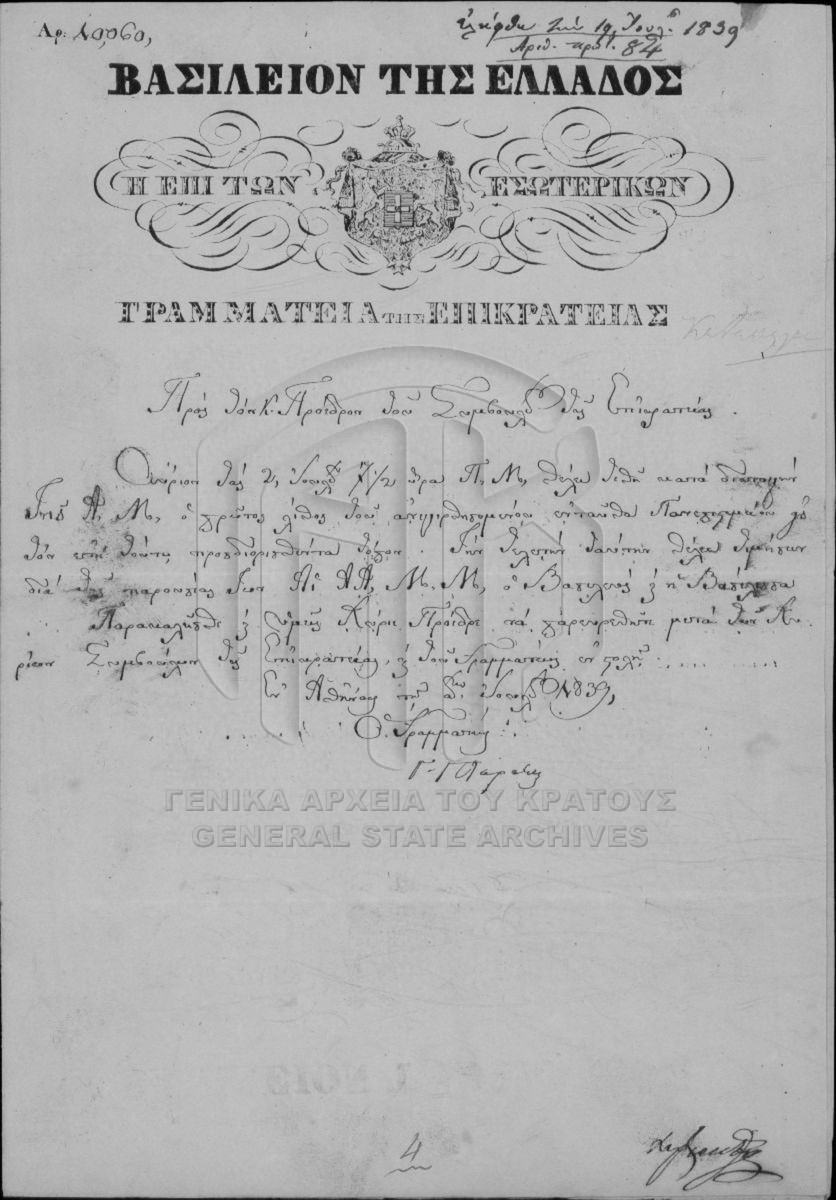 Αρ: 10,060,
ἐλήφθη τὴν 1ῃ Ἰουλ. 1839
Ἀριθ. πρωτ. 84
ΒΑΣΙΛΕΙΟΝ ΤΗΣ ΕΛΛΑΔΟΣ
Η ΕΠΙ ΤΩΝ ΕΣΩΤΕΡΙΚΩΝ
ΓΡΑΜΜΑΤΕΙΑ ΤΗΣ ΕΠΙΚΡΑΤΕΙΑΣ
Πρὸς τὸν Κ. Πρόεδρον τοῦ Συμβουλίου τῆς Ἐπικρατείας.
Αὔριον τὰς 2, Ἰουλίου 7 1/2 ὥρα Π, Μ, θέλει τεθῆ κατὰ διαταγὴν
τῆς Α, Μ, ὁ πρῶτος λίθος τοῦ ἀνεγερθησομένου ἐνταῦθα Πανεπιστημίου εἰς
τὸν ἐπὶ τούτῳ προσδιορισθέντα τόπον. Τὴν τελετὴν ταύτην θέλει τιμήσουν
διὰ τῆς παρουσίας των Αἱ ΑΑ, Μ. Μ, ὁ Βασιλεὺς καὶ ἡ Βασίλισσα
Παρακαλεῖσθε καὶ ὑμεῖς Κύριε Πρόεδρε νὰ παρευρεθῆτε μετὰ τῶν Κυ
ρίων Συμβούλων τῆς Ἐπικρατείας, καὶ τοῦ Γραμματέως ἐν στολῇ
Ἐν Ἀθήναις τῇ αῃ Ἰουλίου 1839,
Ὁ Γραμματεὺς
Γ. Γλαράκης
ΓΕΝΙΚΑ ΑΡΧΕΙΑ ΤΟΥ ΚΡΑΤΟΥΣ
GENERAL STATE ARCHIVES
4